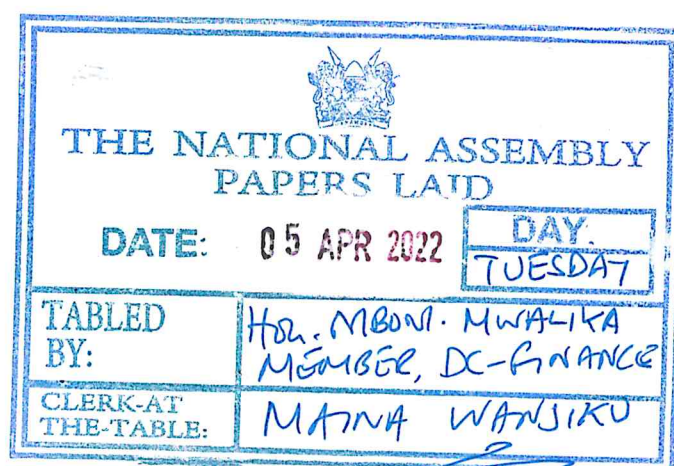 THE NATIONAL ASSEMBLY
PAPERS LAID
DATE: 05 APR 2022
DAY.
TUESDAY
TABLED BY:
Hon. MBONI. MWALIKA
MEMBER, DC-FINANCE
CLERK-AT THE-TABLE:
MAINA WANJIKU